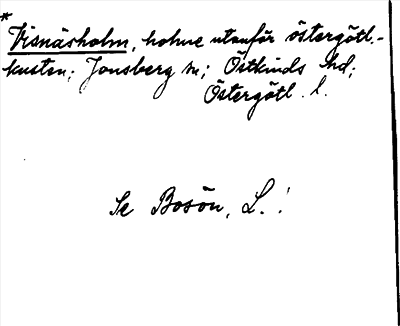 *
Visnäsholm, holme utanför östergötl.-
kusten; Jonsberg sn; Östkinds hd;
Östergötl. l.
Se Bosön, L.!